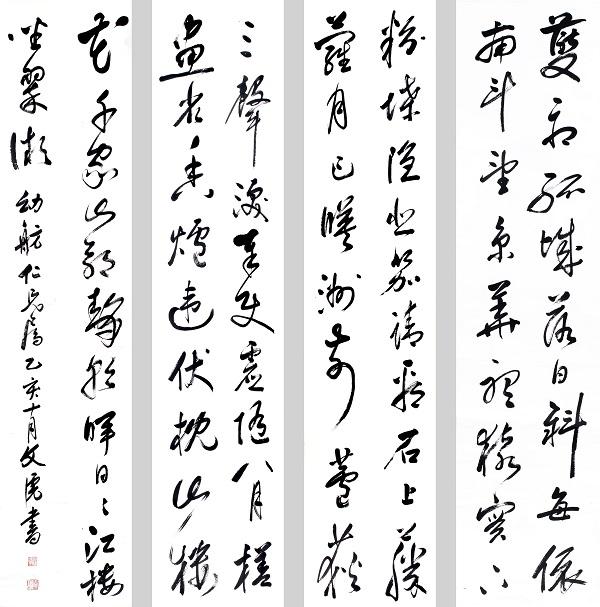 夔府孤城落日斜每依
南斗望京華聽猿實下
粉堞隱悲笳請看石上藤
蘿月已暎洲前蘆荻
三聲淚奉使虛隨八月槎
畫省香爐違伏枕山樓
花千家山郭靜朝暉日〻江樓
坐翠微 幼舫仁兄屬乙亥十月文虎書